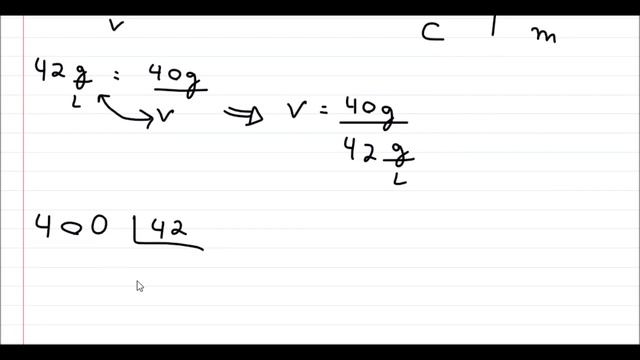 V
C | m
42 g/L = 40g/V ⇒ V = 40g/(42 g/L)
400 |42